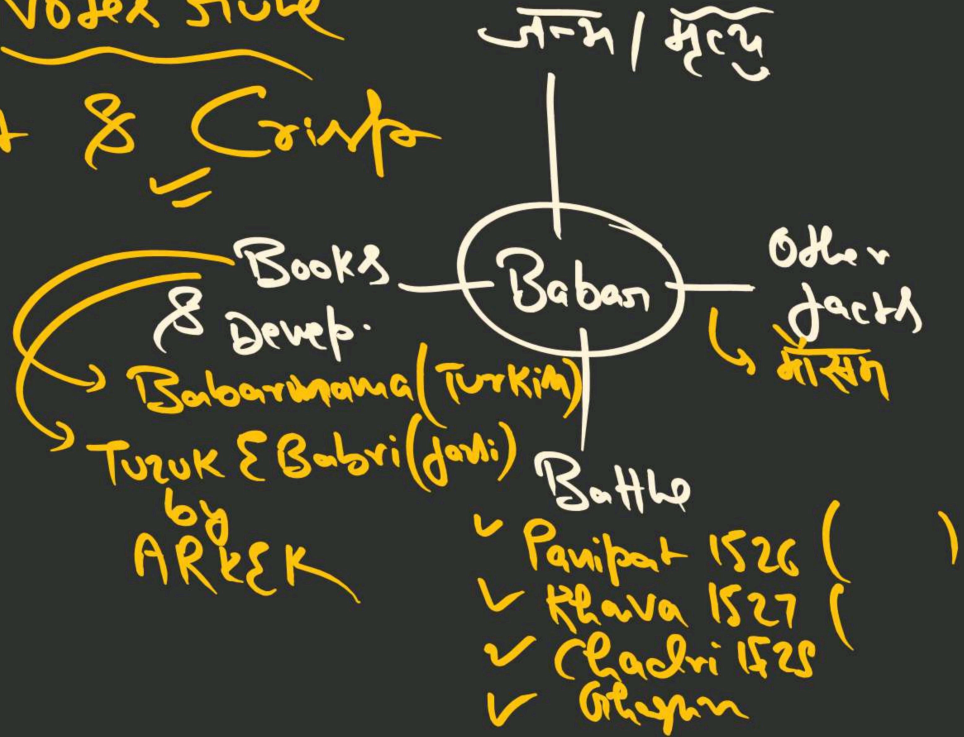 जन्म / मृत्यु
& Crisp
Books
& Devep.
Babar
Other
facts
Babarnama (Turkish)
Tuzuk E Babri (farsi)
by
ARKEK
Battle
Panipat 1526 ( )
Khava 1527 (
Chadri 1528